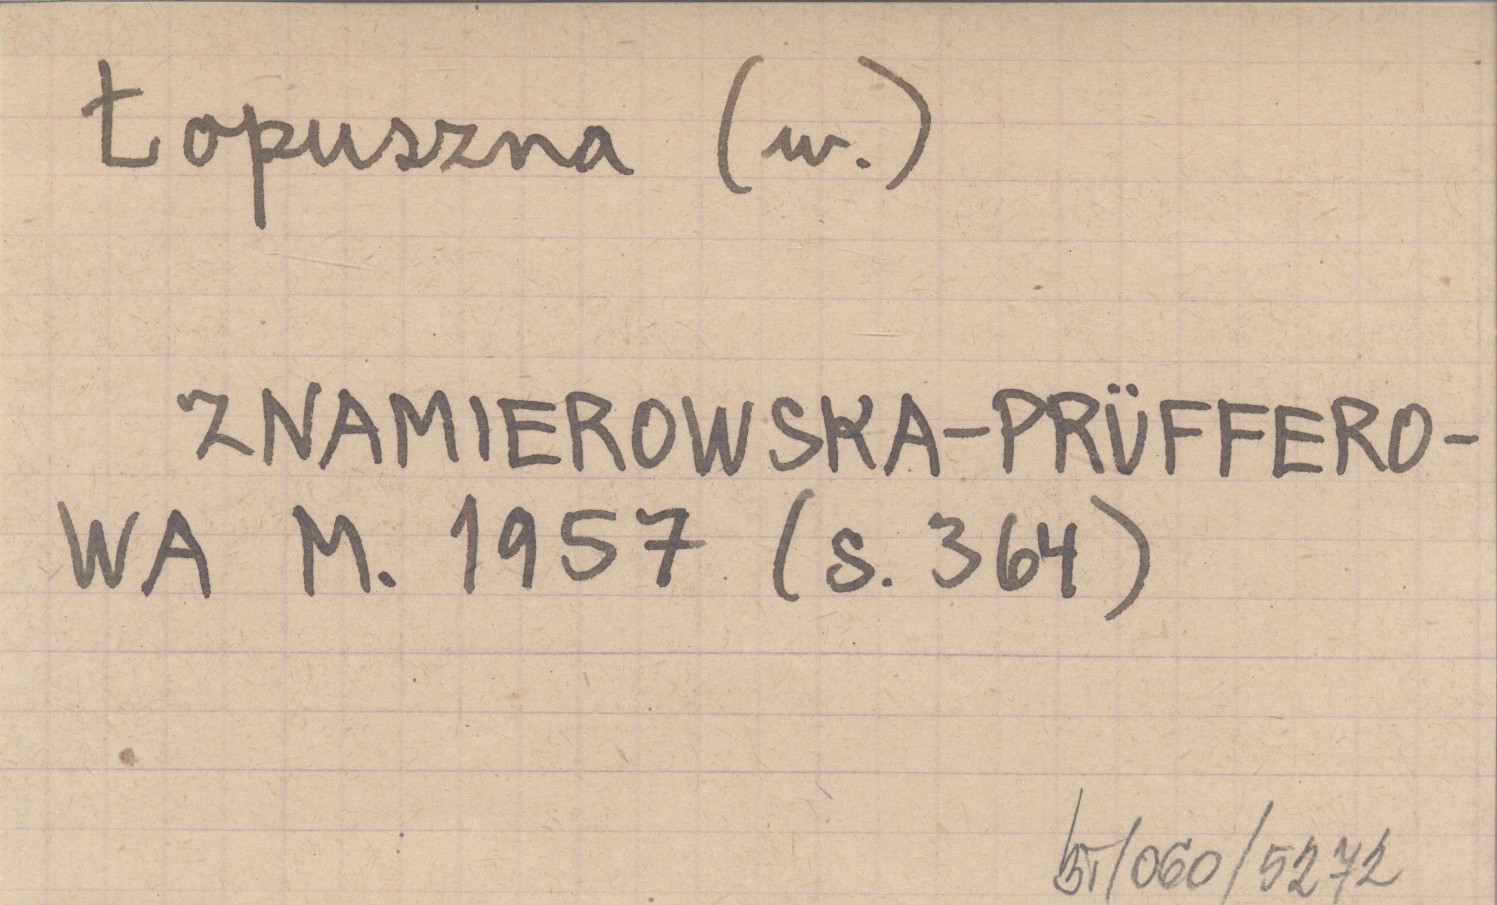 Łopuszna (w.)
ZNAMIEROWSKA-PRÜFFERO-
WA M. 1957 (s. 364)
/060/5272